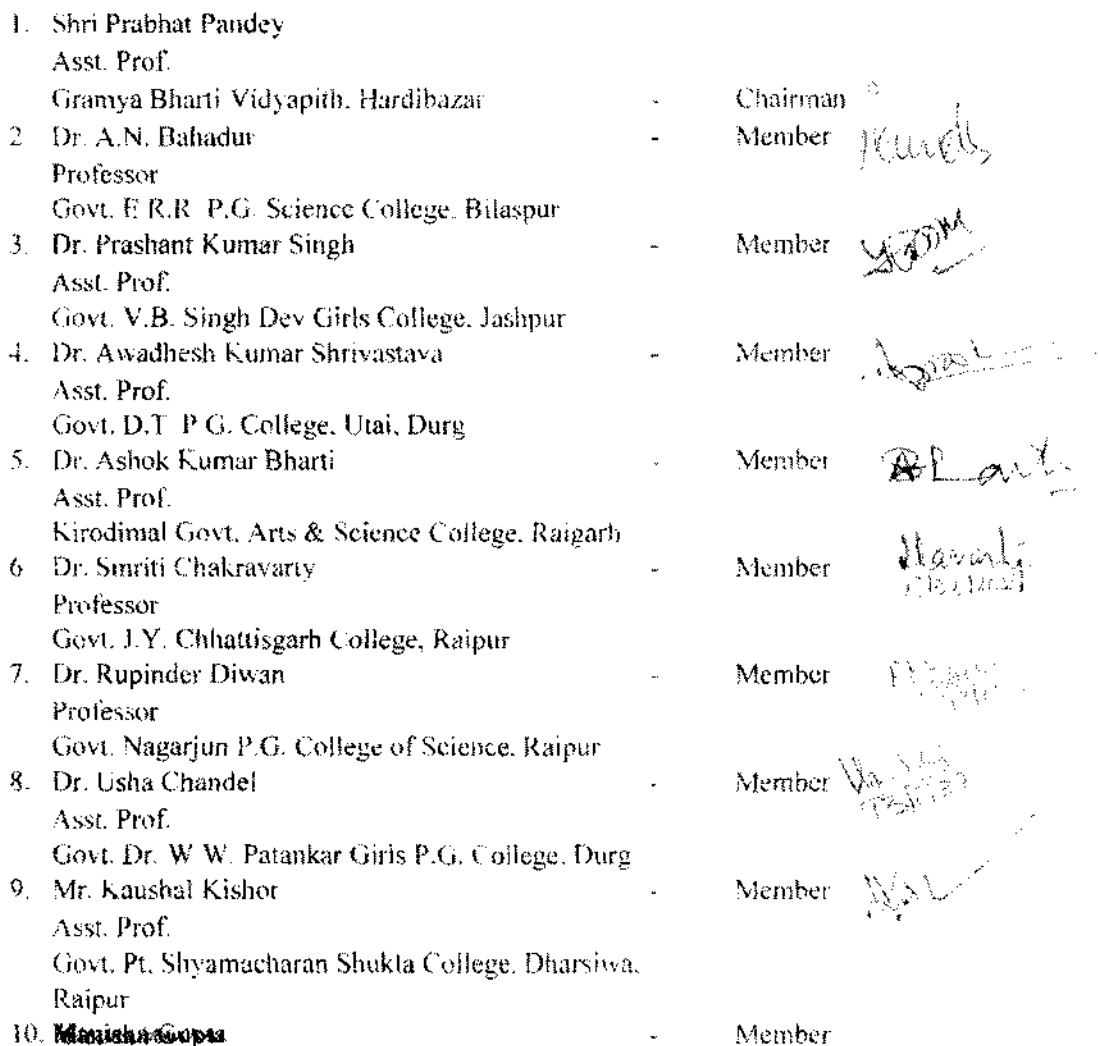 1. Shri Prabhat Pandey
Asst. Prof.
Gramya Bharti Vidyapith, Hardibazar - Chairman
2 Dr. A.N. Bahadur - Member
Professor
Govt. E R.R P.G. Science College, Bilaspur
3. Dr. Prashant Kumar Singh - Member
Asst. Prof.
Govt. V.B. Singh Dev Girls College, Jashpur
4. Dr. Awadhesh Kumar Shrivastava - Member
Asst. Prof.
Govt. D.T P G. College, Utai, Durg
5. Dr. Ashok Kumar Bharti - Member
Asst. Prof.
Kirodimal Govt. Arts & Science College, Raigarh
6 Dr. Smriti Chakravarty - Member
Professor
Govt. J.Y. Chhattisgarh College, Raipur
7. Dr. Rupinder Diwan - Member
Professor
Govt. Nagarjun P.G. College of Science, Raipur
8. Dr. Usha Chandel - Member
Asst. Prof.
Govt. Dr. W W. Patankar Girls P.G. College, Durg
9. Mr. Kaushal Kishor - Member
Asst. Prof.
Govt. Pt. Shyamacharan Shukla College, Dharsiwa,
Raipur
10. - Member